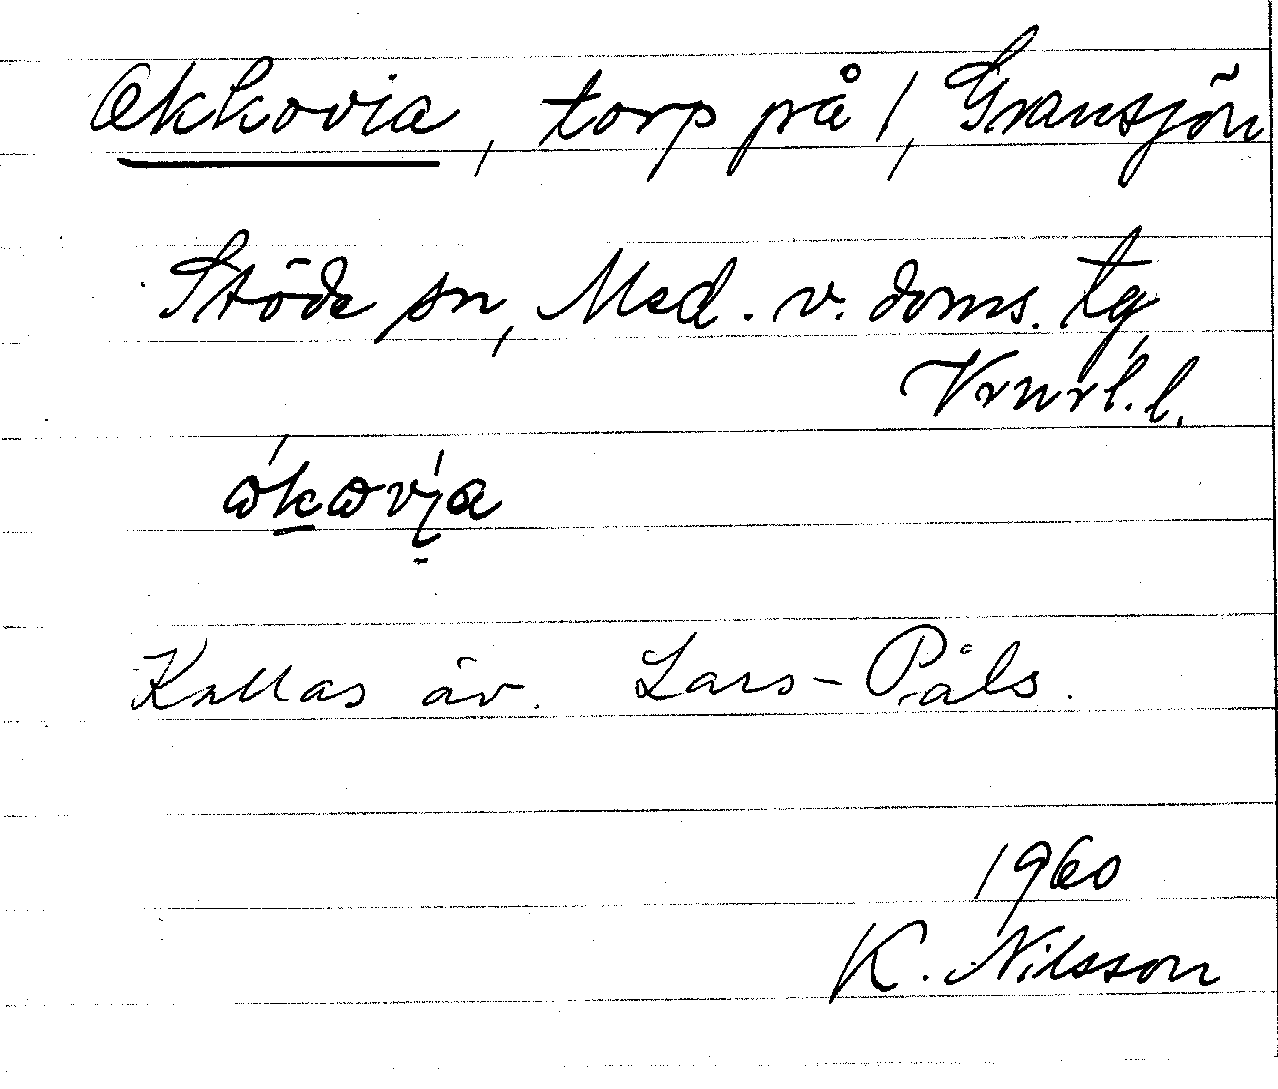 Okkovia, torp på 1, Gransjön
Stöde sn, Med. v. doms. tg,
Vrnrl. l.
Kallas äv. Lars-Påls.
1960
K. Nilsson